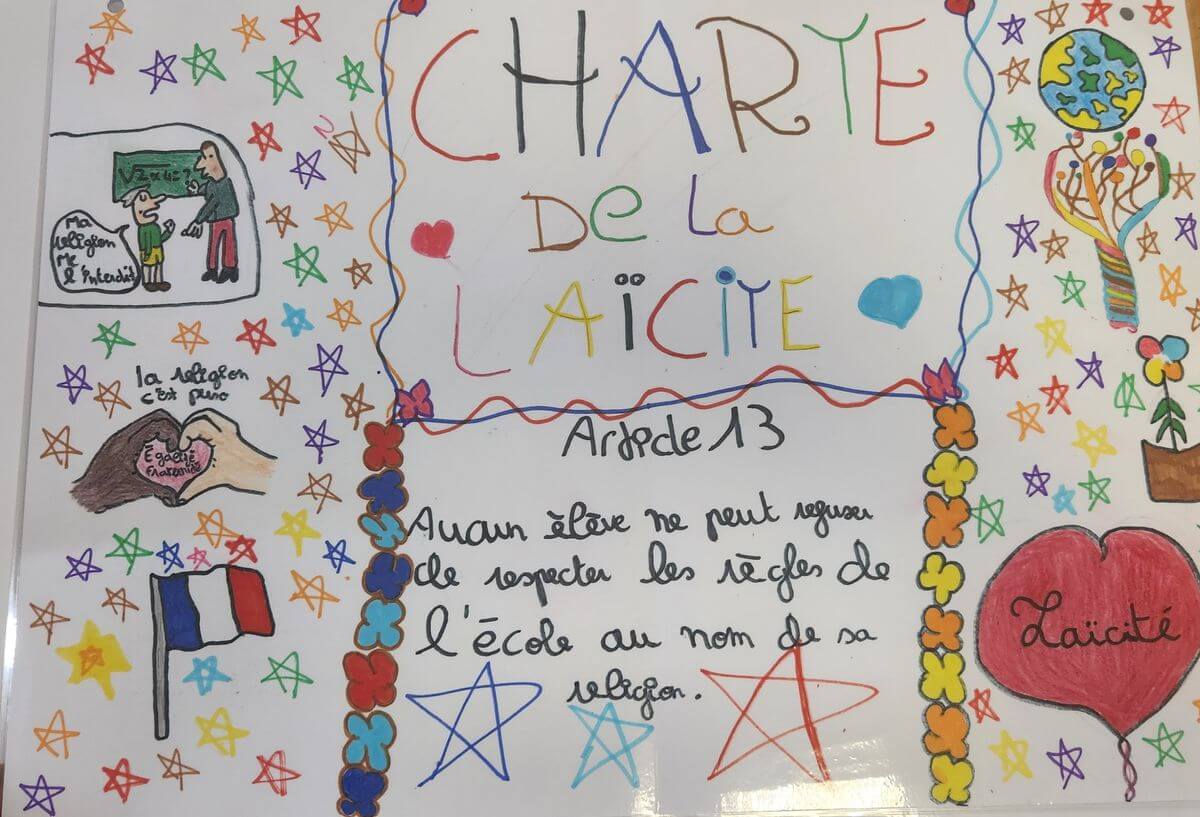 CHARTE
DE La
LAÏCITE
√2x4=?
Ma
religion
me
l'interdit
la religion
c'est
Égalité
fraternité
Article 13
Aucun élève ne peut refuser
de respecter les règles de
l'école au nom de sa
religion.
Laïcité